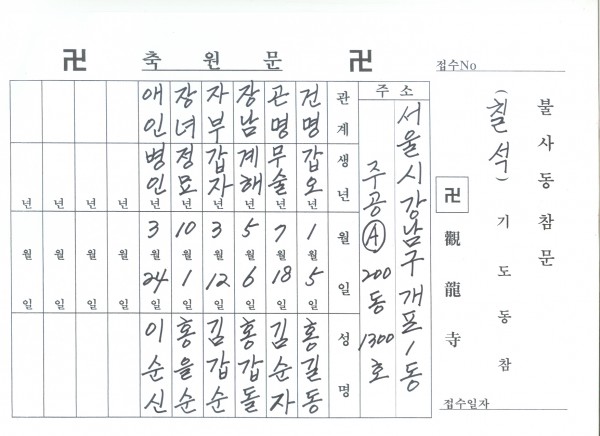 불사동참문
(칠석) 기도동참
접수No
卍 觀龍寺
접수일자
卍 축원문 卍
주소
서울시 강남구 개포1동
주공Ⓐ 200동 1300호
관계 생년 월 일 성명
건명 갑오년 1월 5일 홍길동
곤명 무술년 7월 18일 김순자
장남 계해년 5월 6일 홍갑돌
자부 갑자년 3월 12일 김갑순
장녀 정묘년 10월 1일 홍을순
애인 병인년 3월 24일 이순신
년 월 일
년 월 일
년 월 일
년 월 일